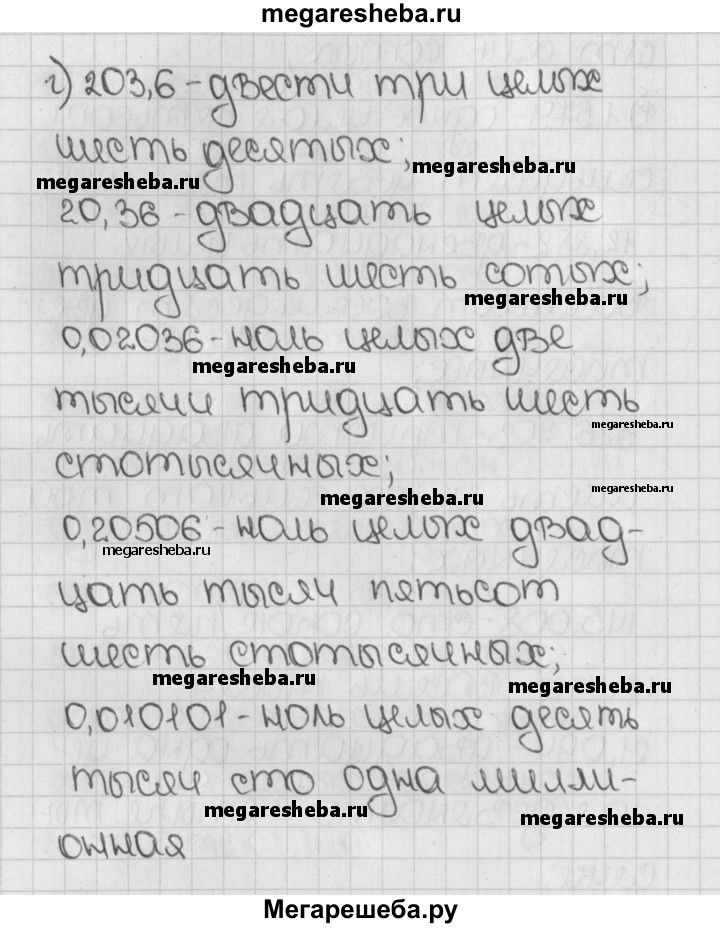 megaresheba.ru
г) 203,6 - двести три целых
шесть десятых;
megaresheba.ru
megaresheba.ru
20,36 - двадцать целых
тридцать шесть сотых;
megaresheba.ru
0,02036 - ноль целых две
megaresheba.ru
тысячи тридцать шесть
megaresheba.ru
стотысячных;
megaresheba.ru
megaresheba.ru
0,20506 - ноль целых двад-
megaresheba.ru
цать тысяч пятьсот
шесть стотысячных;
megaresheba.ru
megaresheba.ru
0,010101 - ноль целых десять
тысяч сто одна милли-
megaresheba.ru
megaresheba.ru
онная
Мегарешеба.ру